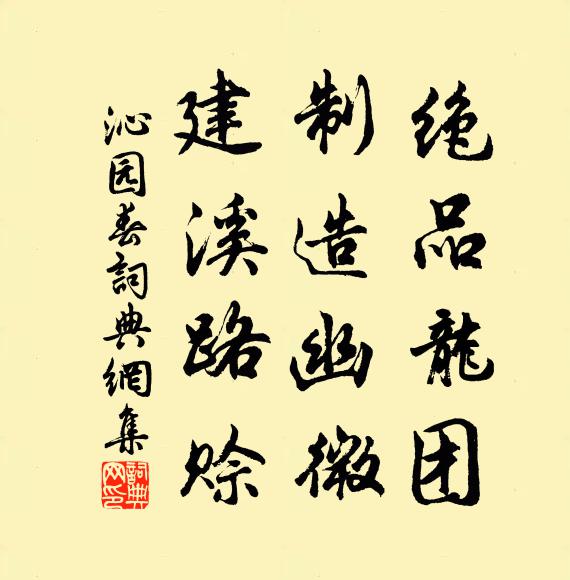 绝品龍团
制造幽微
建溪路赊
沁园春詞典網集
詞典网印